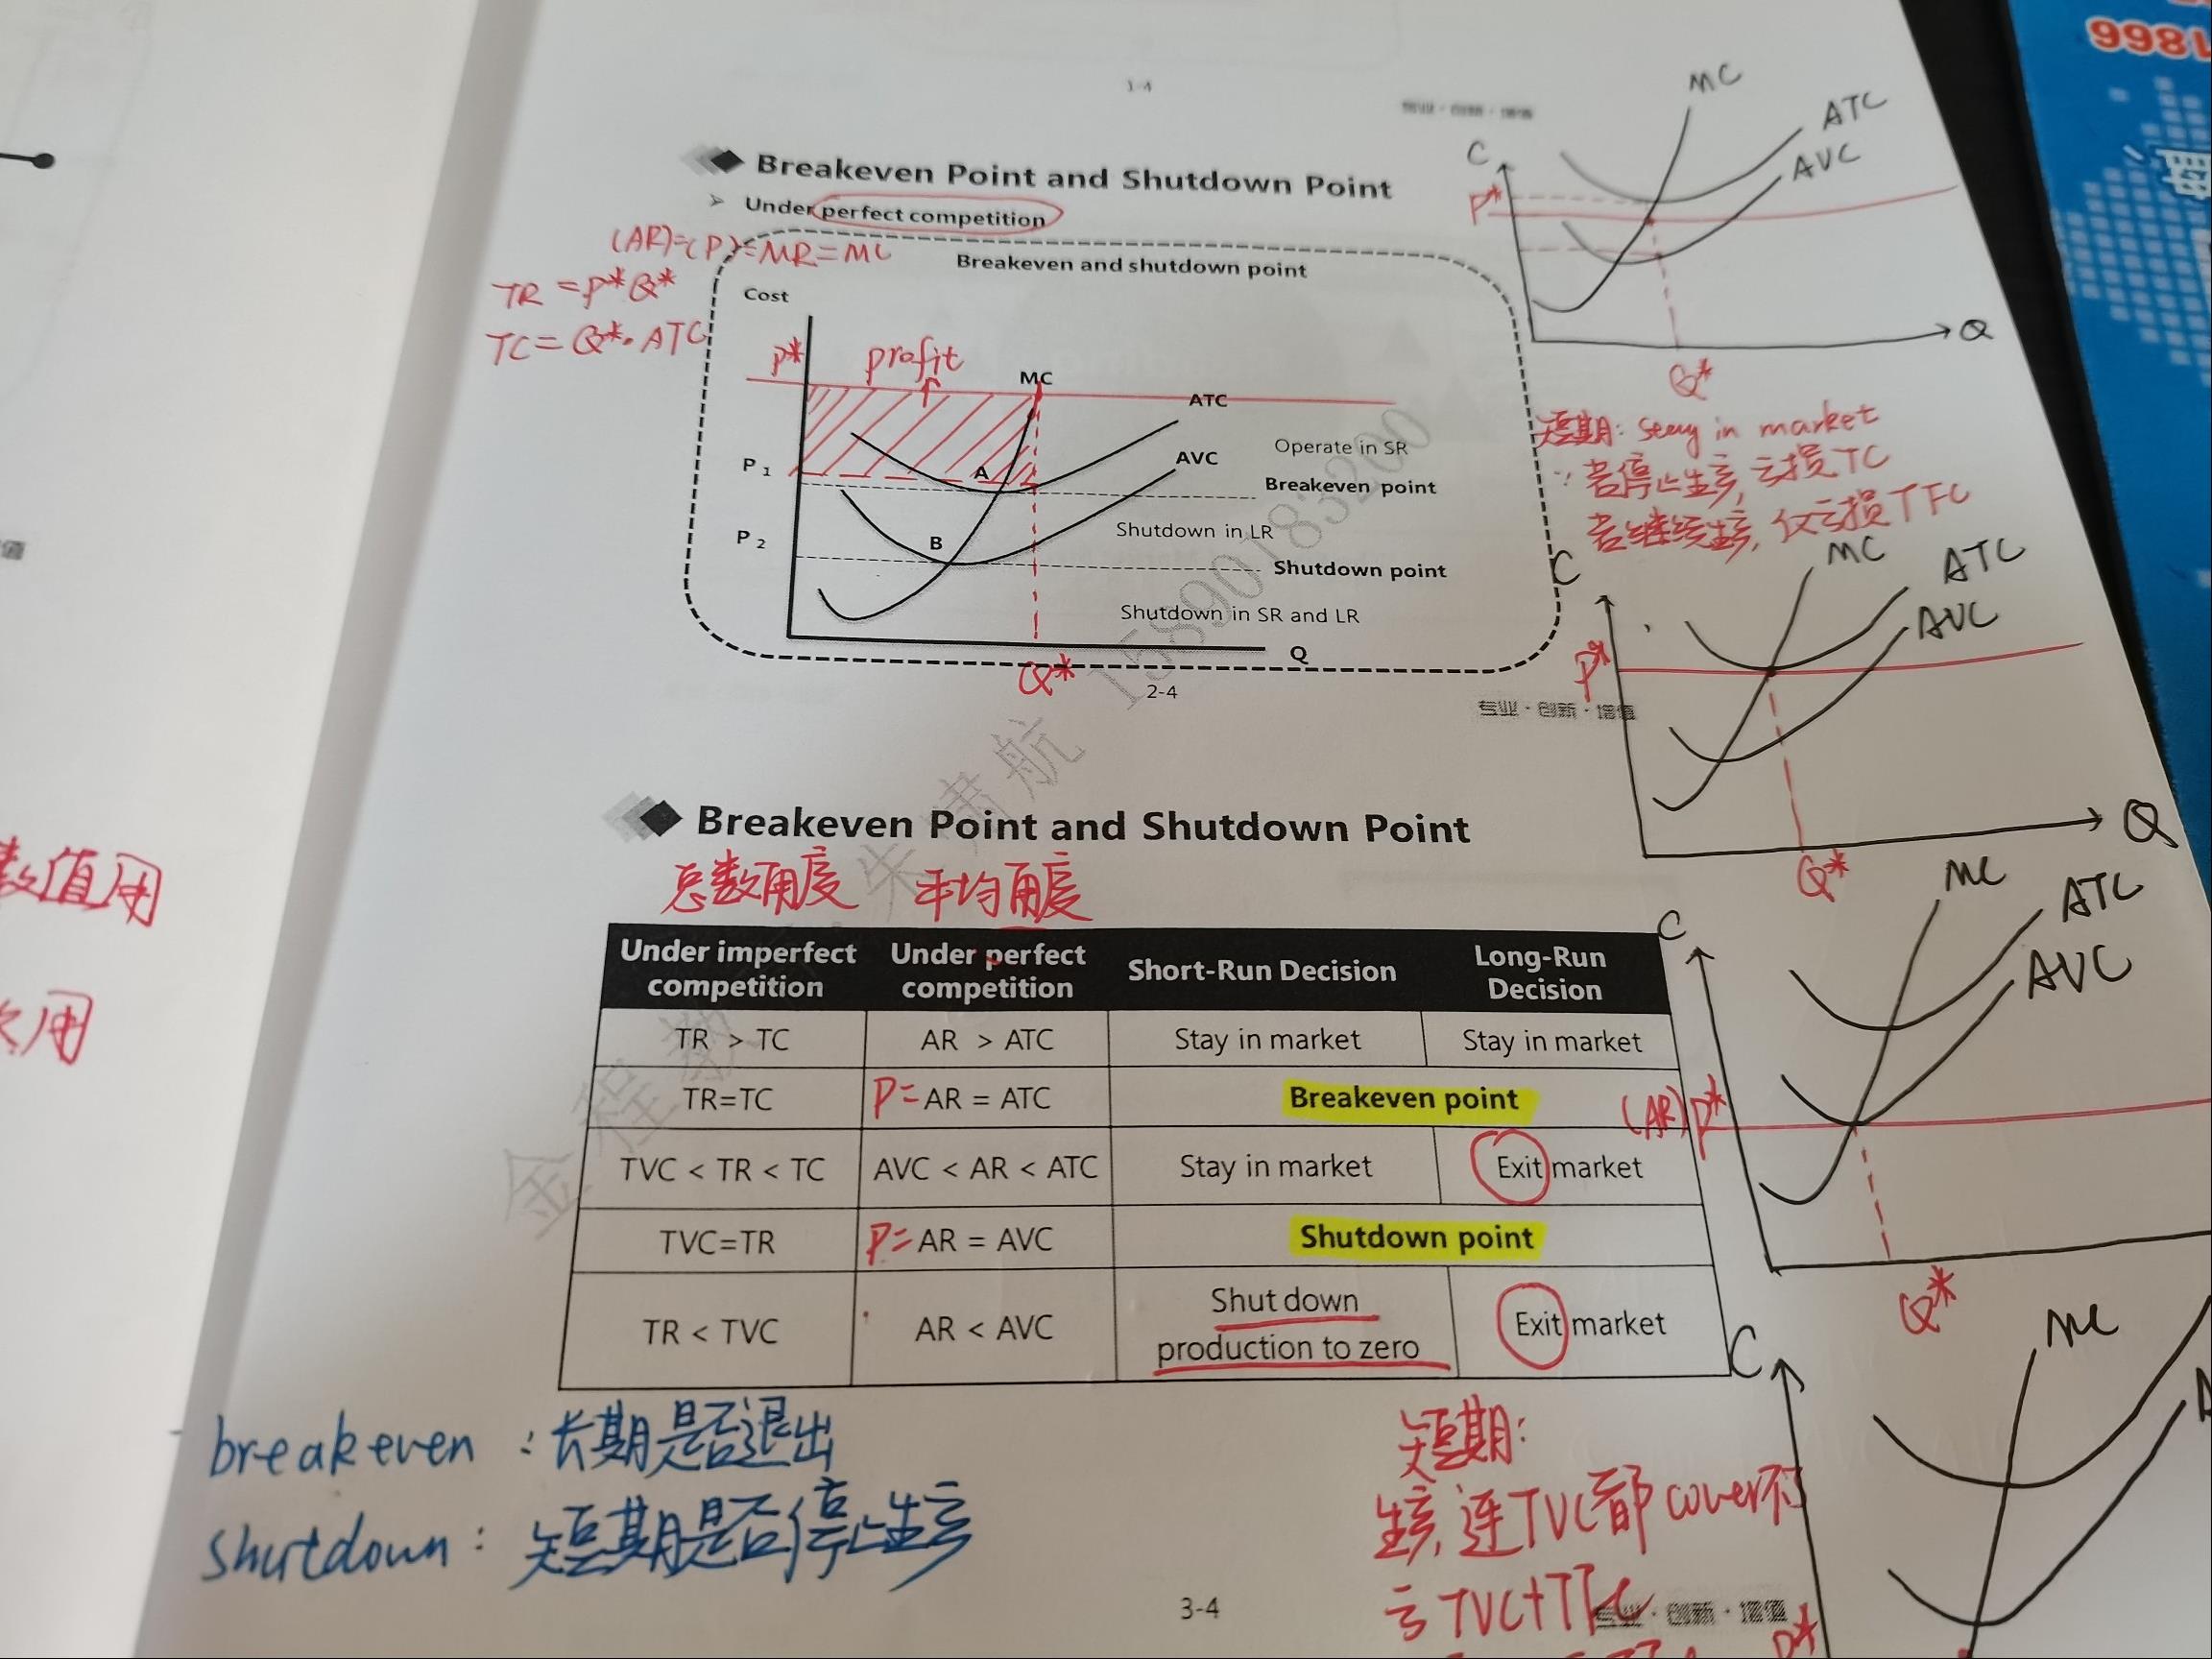 1-4
9981
Breakeven Point and Shutdown Point
Under perfect competition
(AR)=(P)=MR=MC
TR=P*Q*
TC=Q*·ATC
Breakeven and shutdown point
Cost
P*
profit
MC
ATC
AVC
P1
A
Operate in SR
Breakeven point
P2
B
Shutdown in LR
Shutdown point
Shutdown in SR and LR
Q
Q*
2-4
专业·创新·增值
C
MC
ATC
AVC
P*
Q
Q*
短期: stay in market
∵若停止生产,亏损TC
若继续生产,仅亏损TFC
C
MC
ATC
AVC
P*
Q
Q*
金程教育 朱 航 15890183200
Breakeven Point and Shutdown Point
总数角度 平均角度
Under imperfect competition
Under perfect competition
Short-Run Decision
Long-Run Decision
TR > TC
AR > ATC
Stay in market
Stay in market
TR=TC
P=AR = ATC
Breakeven point
TVC < TR < TC
AVC < AR < ATC
Stay in market
Exit market
TVC=TR
P=AR = AVC
Shutdown point
TR < TVC
AR < AVC
Shut down
production to zero
Exit market
C
MC
ATC
AVC
(AR)P*
Q*
C
MC
P*
数值用
用
breakeven:长期是否退出
shutdown:短期是否停止生产
短期:
生产,连TVC都cover不
亏TVC+TFC
3-4
专业·创新·增值